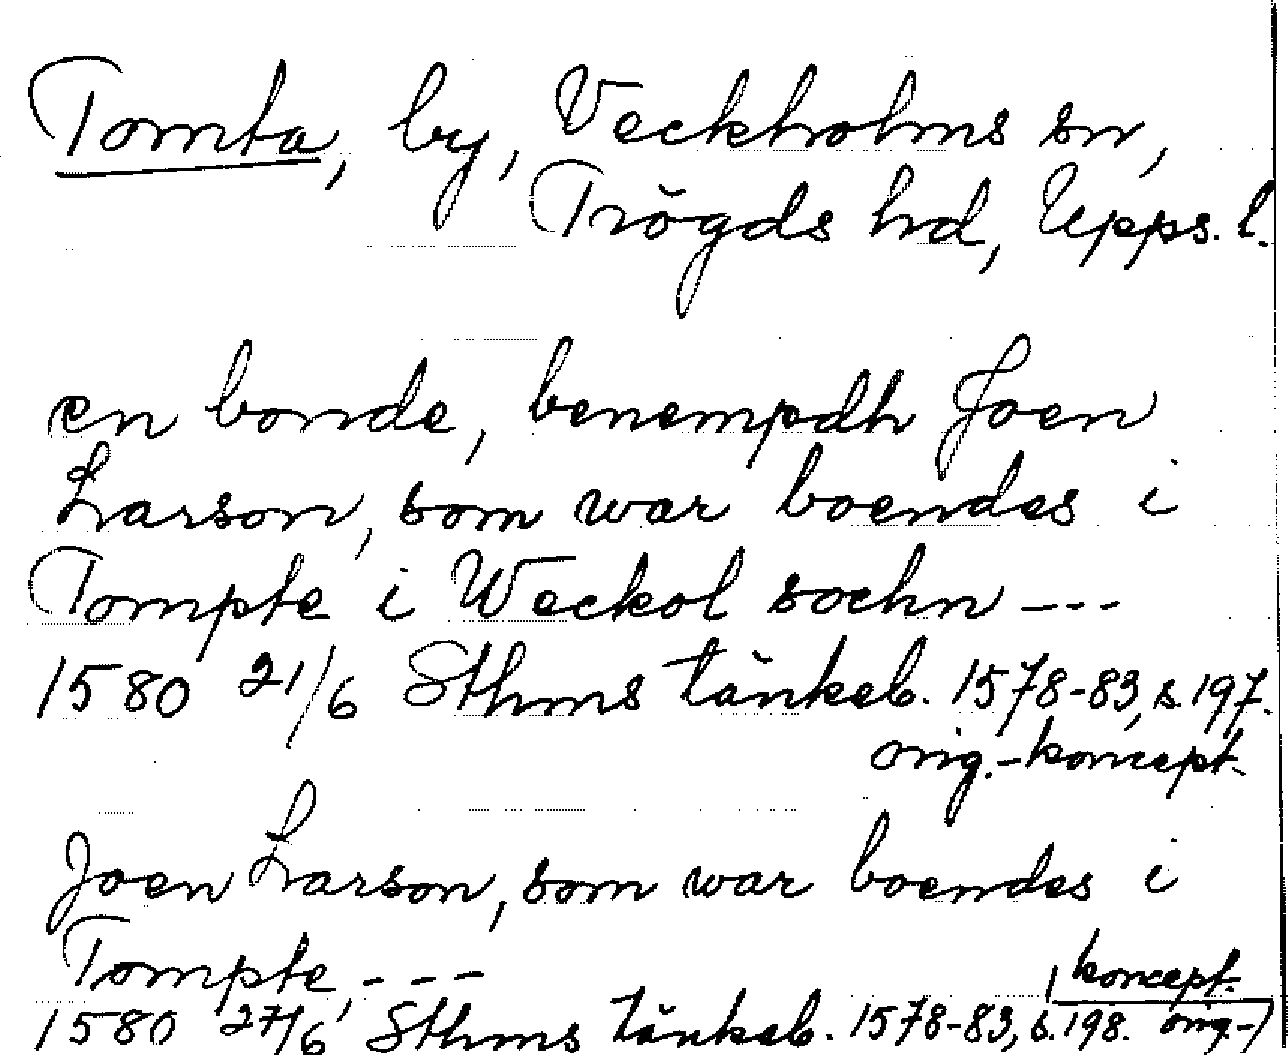 Tomta, by, Veckholms sn,
Trögds hd, Upps. l.
en bonde, benempdh Joen
Larson, som war boendes i
Tompte i Weckol sochn ---
1580 21/6 Sthms tänkeb. 1578-83, s. 197.
orig.-koncept.
Joen Larson, som war boendes i
Tompte, ---
koncept.
1580 27/6 Sthms tänkeb. 1578-83, s. 198. orig.-